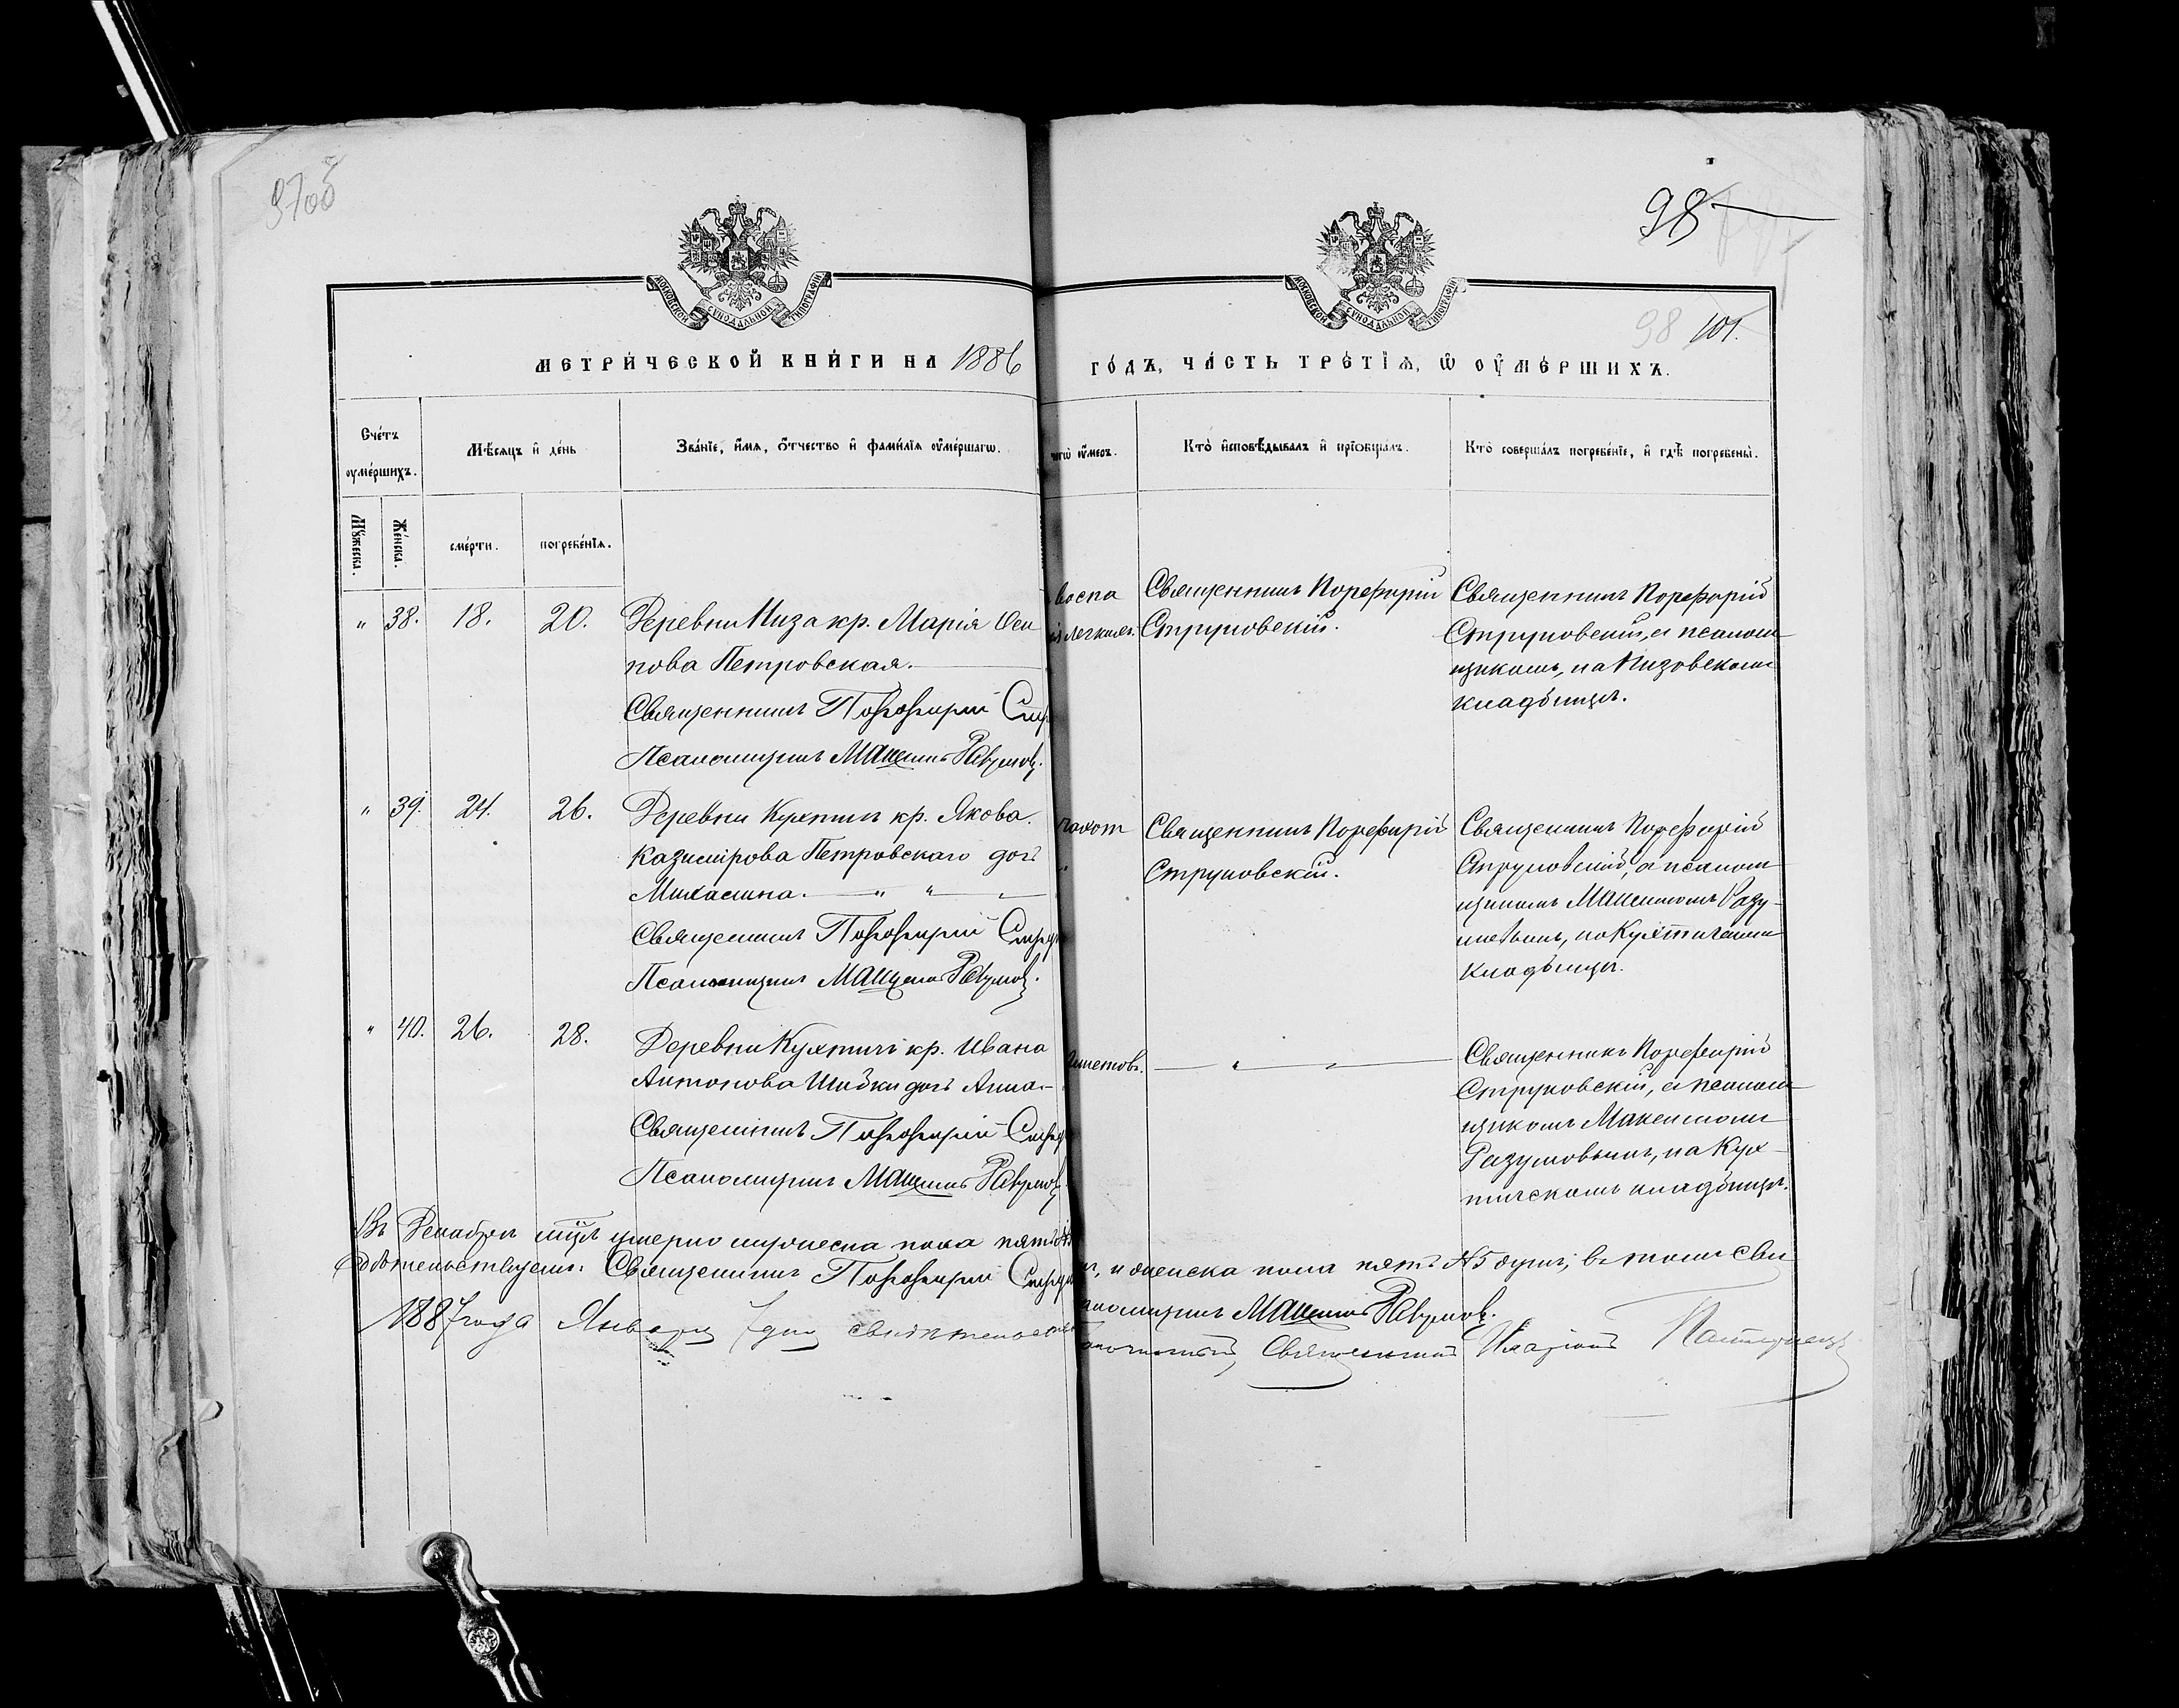 97об
98
98 101.
МОСКОВСКОЙ СѴНОДАЛЬНОЙ ТИПОГРАФІИ
МОСКОВСКОЙ СѴНОДАЛЬНОЙ ТИПОГРАФІИ
МЕТРИ́ЧЕСКОЙ КНИ́ГИ НА 1886
ГО́ДЪ, ЧА́СТЬ ТРЕ́ТІѦ, Ѡ ОУ҆МЕ́РШИХЪ.
Сче́тъ оуме́ршихъ.
Мꙋ́жеска.
Же́нска.
Мѣ́сяцъ и де́нь
сме́рти.
погребе́нїѧ.
Зва́нїе, и́мѧ, ѻ́тчество и фами́лїѧ оуме́ршагѡ.
чегѡ̀ оу́меръ.
Кто̀ исповѣ́дывалъ и прїѡбща́лъ.
Кто̀ соверша́лъ погребе́нїе, и гдѣ̀ погребены̀.
" 38. 18. 20.
Деревни Низа кр. Марія Оси
пова Петровская.
Священникъ Порфирій Стр
Псаломщикъ Максимъ Разумов.
воспа
легких.
Священникъ Порфирій
Струковскій.
Священникъ Порфирій
Струковскій, с псалом
щикомъ, на Низовскомъ
кладбищѣ.
" 39. 24. 26.
Деревни Кухтичъ кр. Якова
Казимірова Петровскаго дочь
Михалина. " "
Священникъ Порфирій Стру
Псаломщикъ Максимъ Разумов.
чахот
Священникъ Порфирій
Струковскій.
Священникъ Порфирій
Струковскій, с псалом
щикомъ Максимомъ Разу-
мовымъ, на Кухтическомъ
кладбищѣ.
" 40. 26. 28.
Деревни Кухтичъ кр. Ивана
Антонова Шибки дочь Анна.
Священникъ Порфирій Стру
Псаломщикъ Максимъ Разумов.
" "
Священникъ Порфирій
Струковскій, с псалом
щикомъ Максимомъ
Разумовымъ, на Кух-
тическомъ кладбищѣ.
Въ Декабрѣ мцѣ умерло мужеска пола пять
и женска пола пять №5 душъ; въ томъ сви
дѣтельствуемъ: Священникъ Порфирій Струк
Максимъ Разумов.
1887 года Января 7 дня свидѣтельство
Священникъ Иларіонъ